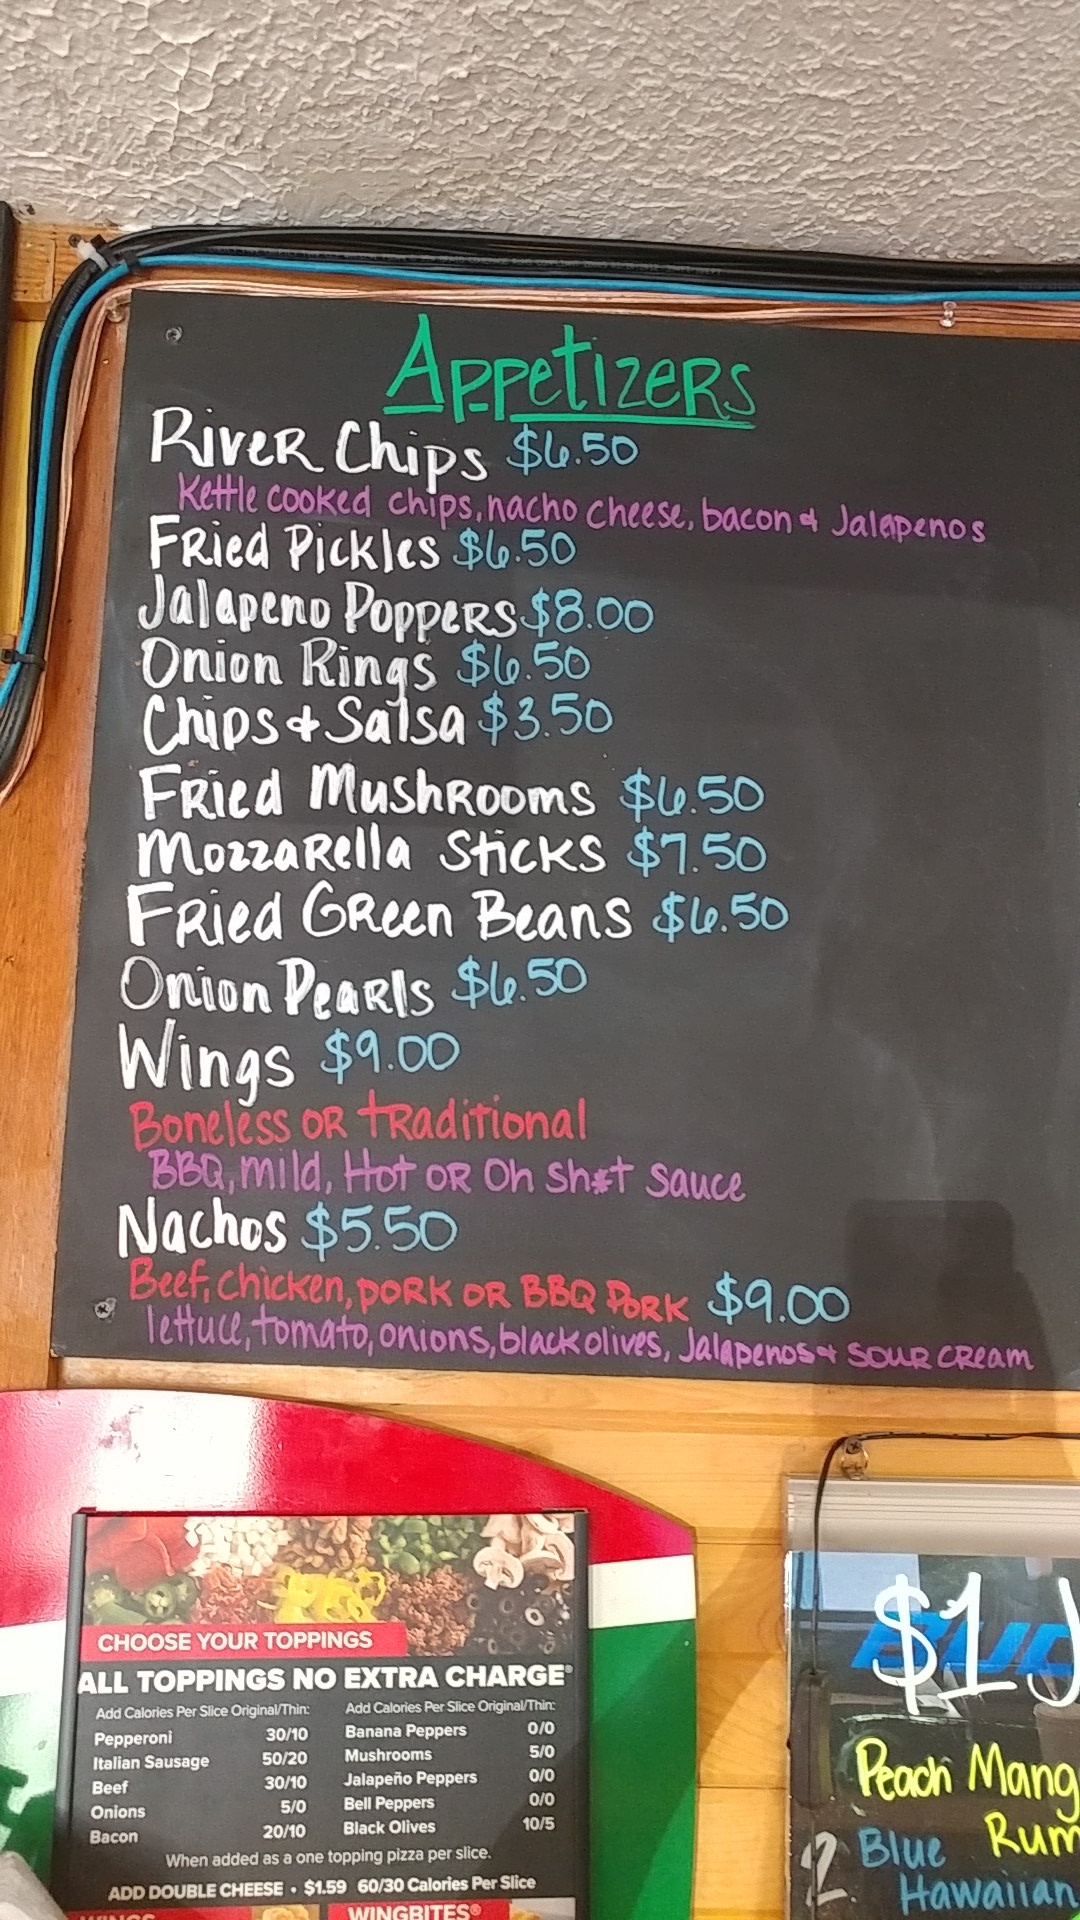 Appetizers
River Chips $6.50
Kettle cooked chips, nacho cheese, bacon & Jalapenos
Fried Pickles $6.50
Jalapeno Poppers $8.00
Onion Rings $6.50
Chips & Salsa $3.50
Fried Mushrooms $6.50
Mozzarella Sticks $7.50
Fried Green Beans $6.50
Onion Pearls $6.50
Wings $9.00
Boneless or traditional
BBQ, mild, Hot or Oh sh*t sauce
Nachos $5.50
Beef, chicken, pork or BBQ Pork $9.00
lettuce, tomato, onions, black olives, Jalapenos & sour cream
CHOOSE YOUR TOPPINGS
ALL TOPPINGS NO EXTRA CHARGE®
Add Calories Per Slice Original/Thin: Add Calories Per Slice Original/Thin:
Pepperoni 30/10 Banana Peppers 0/0
Italian Sausage 50/20 Mushrooms 5/0
Beef 30/10 Jalapeño Peppers 0/0
Onions 5/0 Bell Peppers 0/0
Bacon 20/10 Black Olives 10/5
When added as a one topping pizza per slice.
ADD DOUBLE CHEESE • $1.59 60/30 Calories Per Slice
WINGS WINGBITES®
$1 J
BUD
Peach Mang
Rum
2. Blue
Hawaiian